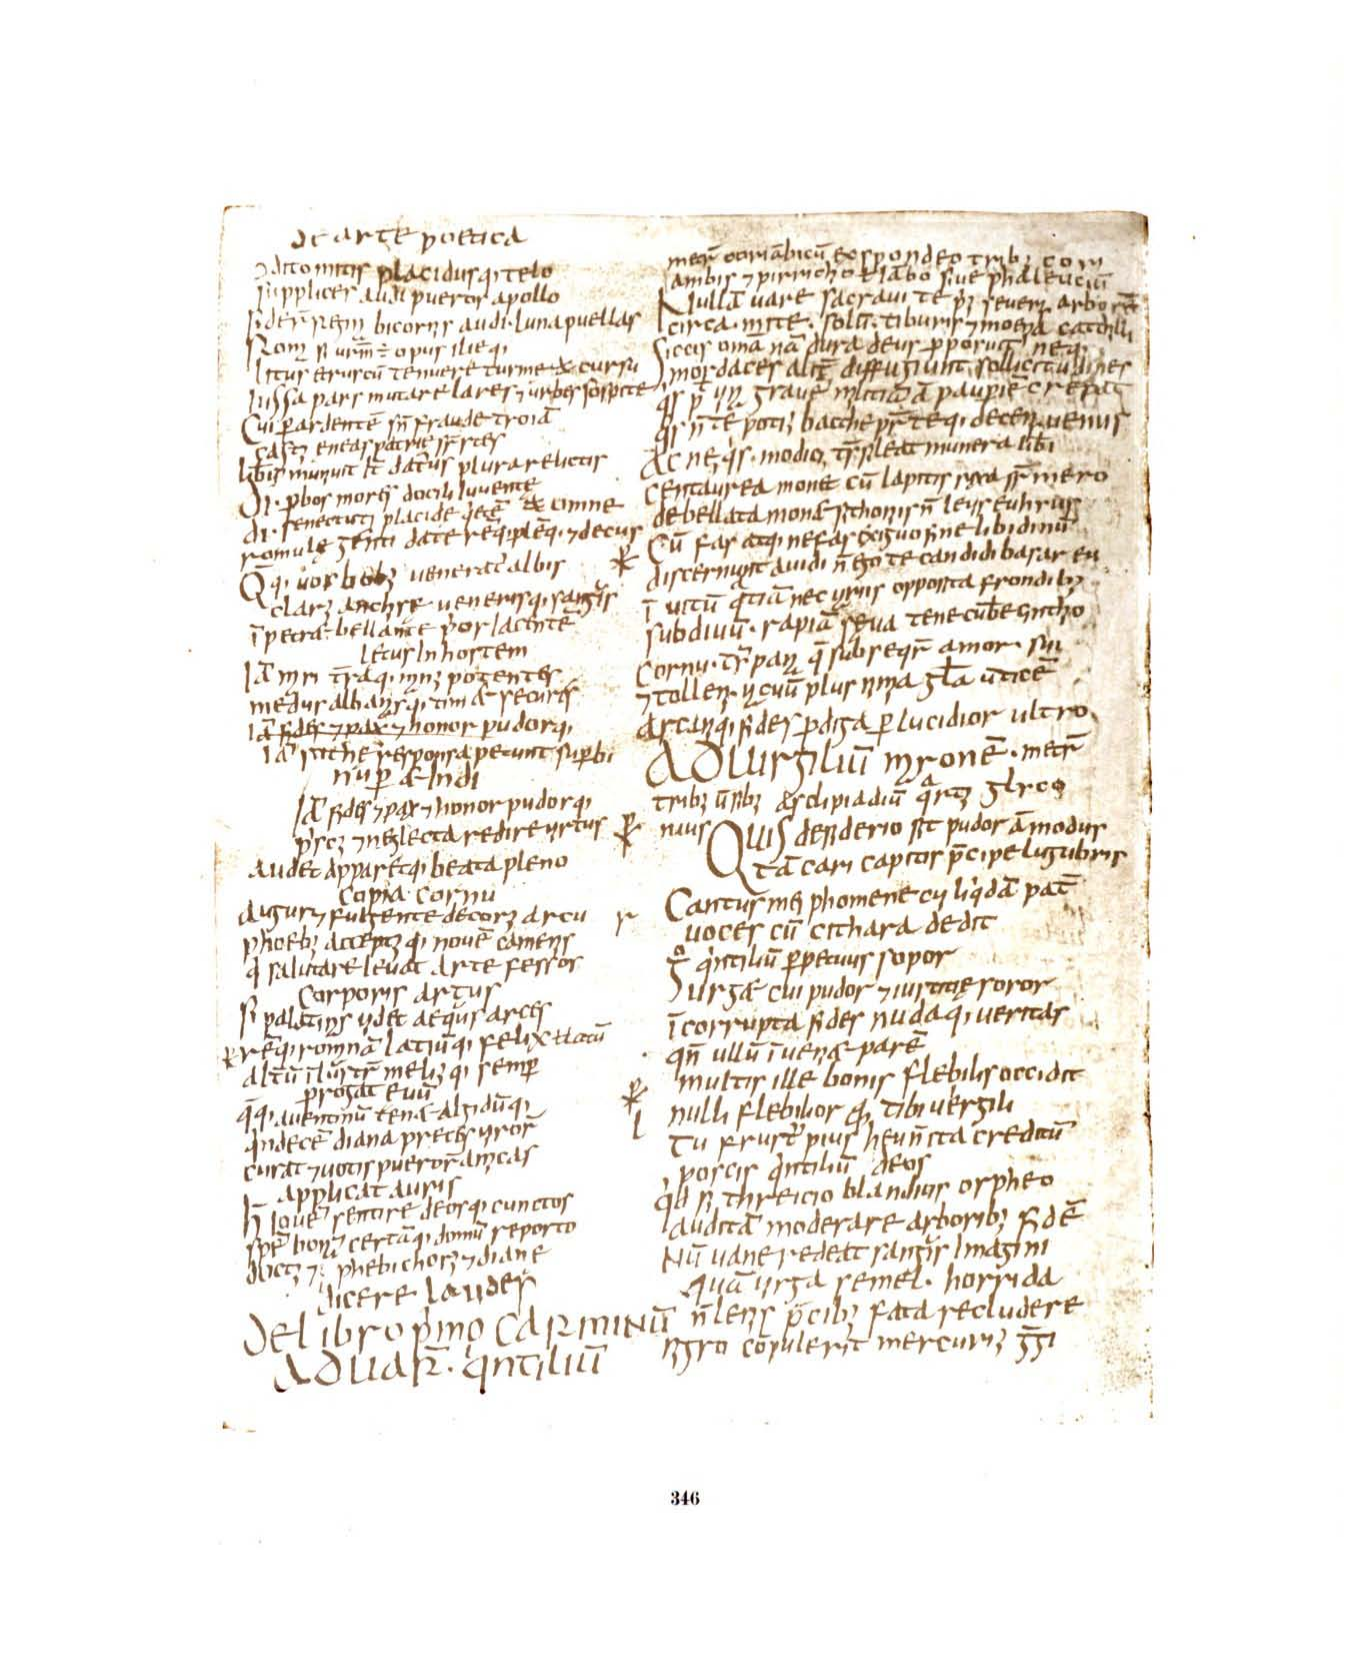 de arte poetica
Condito mitis placidusq; telo
supplices audi pueros apollo
siderum regina bicornis audi luna puellas
Roma si urm̄ ÷ opus ilieq;
litus etruscū tenuere turme & cursu
iussa pars mutare lares ⁊ urbes sospite
Cui p ardentē sn̄ fraude troiā
castus eneas patrie sup̄stes
libērū muniuit it̄ daturus plura relictis
Di pbos mores docili iuuente
di senectuti placide q̇etē & omne
romulę genti date rēq; plēq; ⁊ decus
Q̄q; uos bobus ueneratr̄ albis
clarus anchise uenerisq; sangis
īpetra bellante prior iacentē
letus in hostem
Iā mri trāq; manus potentes
medus albanasq; timet secures
iā fides ⁊ pax ⁊ honor pudorq;
Iā scithe responsa petunt supbi
nup & Indi
Iā fides ⁊ pax ⁊ honor pudorq;
priscus ⁊ neglecta redire uirtus
audet apparetq; beata pleno
copia cornu
Augur ⁊ fulgente decorus arcu
phoebus acceptus q; nouē camenis
q̇ salutare leuat arte fessos
corporis artus
Si palatinas uidet aequs arces
rēq; romanā latiūq; felix
altū ī lustrū melius q; semp
progat euū
q̄q; auentinū tenet algidūq;
q̇ndecē diana preces uiror̄
curat ⁊ uotis pueror̄ amicas
applicat auris
h̄ iouē sentire deosq; cunctos
spē bonā certāq; domū reporto
doctus ⁊ phebi chorus ⁊ diane
dicere laudes
De libro primo CARMINUM
AD UAR̄. q̇ntiliū
metr̄ coriābicū ex spondeo tribus cori
ambis ⁊ pirricho & iābo siue phaleuciū
Nullā uare sacra uite prius seueris arborē
circa mite solū tiburis ⁊ moenia catchilli
Siccis omīa nā dura deus pposuit neq;
mordaces alit̄ diffugiunt sollicitudines
q̇s p̄ uina grauē militiā ā paupiē crepat
q̇s n̄ te potius bacche patr̄ teq; decens uenus
Ac ne q̇s modici trāsileat munera liberi
Centaurea monet cū lapitis rixa sr̄ mero
debellata monet sithoniis n̄ leuis euhius
Cū fas atq; nefas exiguo fine libidinū
discernunt auidi n̄ ego te candidi basareu
ī uitū q̄tiā nec uariis oppossita frondibus
sub diuū rapiā seua tene cūbe ęintho
cornu tȳpana q̄ subsequitr̄ amor sui
⁊ tollens uacuū plus nimia glā uticē
arcaniq; fides pdiga p lucidior uitro
AD Uirgiliū maronē metr̄
tribus uersibus asclipiadiū q̇rtus glico
nius
QUIS desiderio sit pudor ā modus
Tā cari capitos p̄cipe lugubris
Cantus melphomene cui liq̇dā pat̄
uoces cū cithara dedit
g̊ q̇ntiliū ppetuus sopor
urget cui pudor ⁊ iustitię soror
īcorrupta fides nudaq; ueritas
qn̄ ullū īueniet parē
multis ille bonis flebilis occidit
nulli flebilior q̄ tibi uergili
Tu frust̄ pius heu n̄ ita creditū
poscis q̇ntiliū deos
q̇d si threicio blandius orpheo
auditā moderare arboribus fidē
Nū uane redeat sangis Imagini
quā uirga semel horrida
n̄ lenis p̄cibus fata recludere
nigro cōpulerit mercurius g̅gi
346